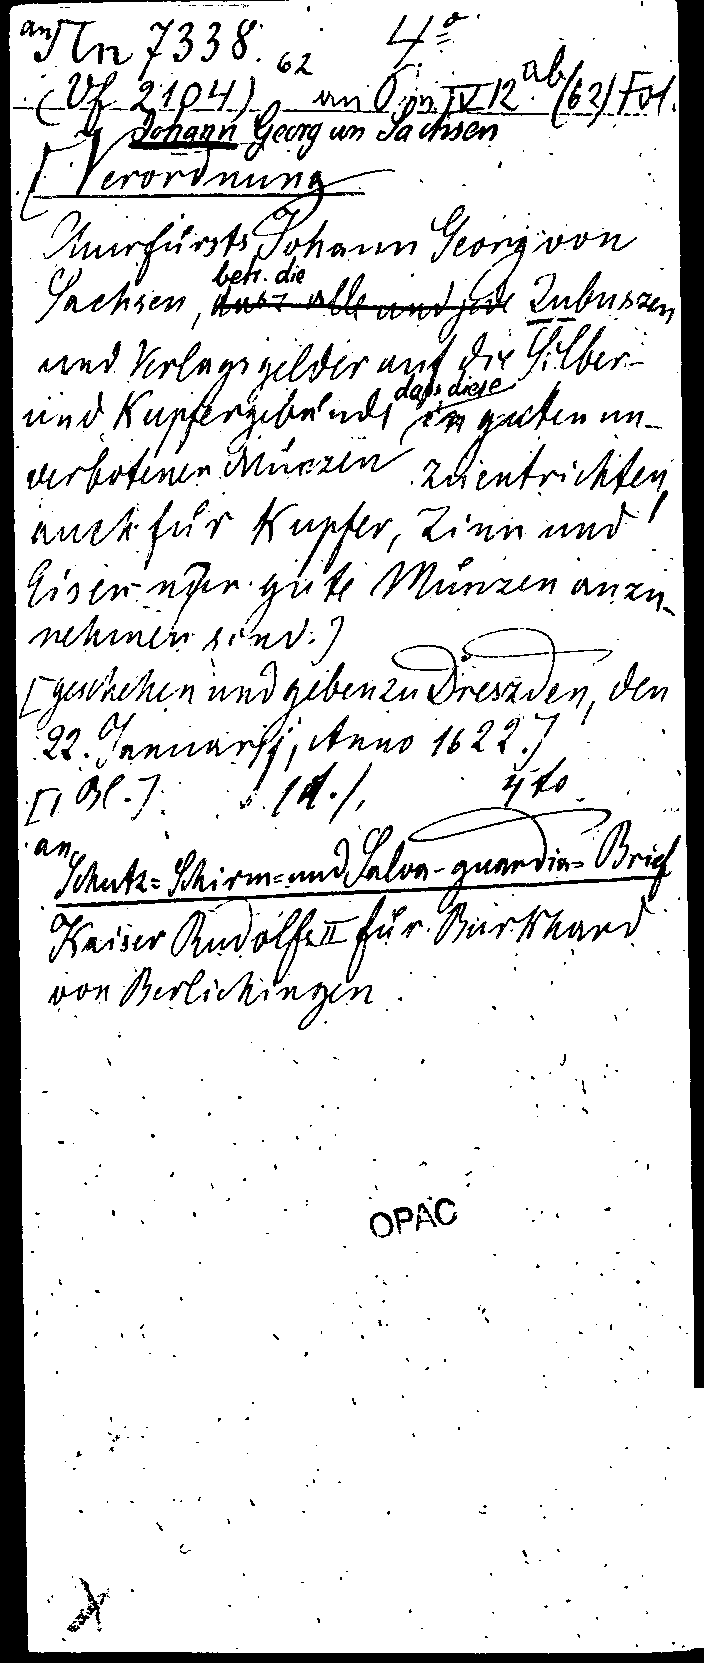 an Nn 7338. 62 4°
(Vf 2104) an IV 12 ab (62) Fol.
Johann Georg von Sachsen
[Verordnung
Churfürsts Johann Georg von
Sachsen, betr. die dasz alle und jede Zubuszen
und Verlagsgelder auf die Silber-
und Kupfergebäude dass diese in guten un-
verbotenen Münzen zu entrichten,
auch für Kupfer, Zinn und
Eisen nur gute Münzen anzu-
nehmen sind.]
[geschehen und geben zu Dreszden, den
22. Januarij, Anno 1622.]
[1 Bl.] 4to
an
Schutz- Schirm- und Salva-guardia- Brief
Kaiser Rudolfs II für Burkhard
von Berlichingen.
OPAC